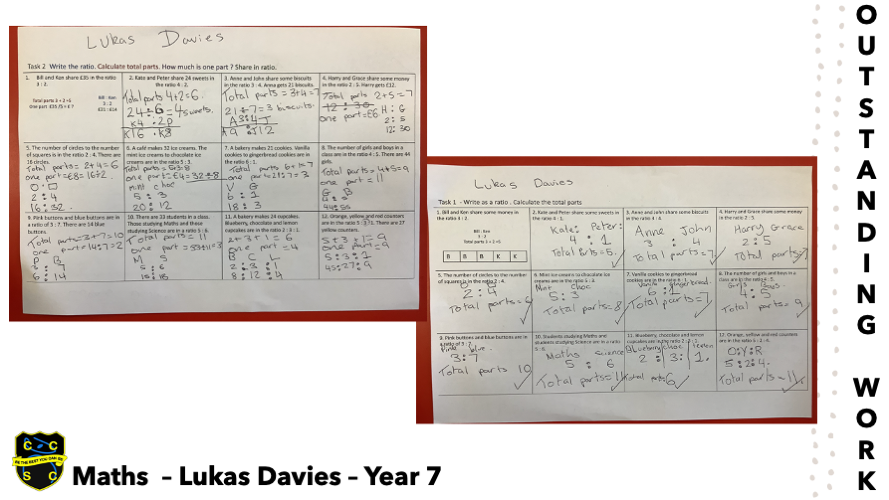 Lukas Davies
Task 2 Write the ratio. Calculate total parts. How much is one part ? Share in ratio.
1. Bill and Ken share £35 in the ratio
3 : 2.
Bill : Ken
3 : 2
Total parts 3 + 2 =5
2. Kate and Peter share 24 sweets in
the ratio 4 : 2.
Total parts 4+2=6.
24÷6=4 sweets.
K16 : K8
3. Anne and John share some biscuits
in the ratio 3 : 4. Anna gets 21 biscuits.
Total parts = 3+4=7
21÷7=3 biscuits.
A 3:4 J
A9 : J12
4. Harry and Grace share some money
in the ratio 2 : 5. Harry gets £12.
Total parts 2+5=7
12 : 30 H : G
one part=£6
2 : 5
12: 30
5. The number of circles to the number
of squares is in the ratio 2 : 4. There are
16 circles.
Total parts= 2+4=6
one part=£8=16÷2
2 : 4
16 : 32
6. A café makes 32 ice creams. The
mint ice creams to chocolate ice
creams are in the ratio 5 : 3.
one part=£4=32÷8
mint choc
5 : 3
20 : 12
7. A bakery makes 21 cookies. Vanilla
cookies to gingerbread cookies are in
the ratio 6 : 1.
Total parts 6+1=7
one part=21÷7=3
V G
6 : 1
18 : 3
8. The number of girls and boys in a
class are in the ratio 4 : 5. There are 44
girls.
Total parts= 4+5=9
one part = 11
G B
4 : 5
44:55
9. Pink buttons and blue buttons are in
a ratio of 3 : 7. There are 14 blue
buttons.
Total parts=3+7=10
one part=14÷7=2
P B
3 : 7
6 : 14
10. There are 33 students in a class.
Those studying Maths and those
studying Science are in a ratio 5 : 6.
Total parts = 11
one part =33÷11=3
M S
5 : 6
15 : 18
11. A bakery makes 24 cupcakes.
Blueberry, chocolate and lemon
cupcakes are in the ratio 2 : 3 : 1.
2+3+1=6
one part =4
B C L
2 : 3 : 1
8 : 12 : 4
12. Orange, yellow and red counters
are in the ratio 5 : 3 : 1. There are 27
yellow counters.
5+3+1=9
one part=9
5 : 3 : 1
45:27:9
Lukas Davies
Task 1 - Write as a ratio . Calculate the total parts
1. Bill and Ken share some money in
the ratio 3 : 2.
Bill : Ken
3 : 2
Total parts 3 + 2 =5
B B B K K
2. Kate and Peter share some sweets in
the ratio 4 : 1.
Kate: Peter:
4 : 1
Total Parts=5.
3. Anne and John share some biscuits
in the ratio 3 : 4.
Anne John
3 : 4
Total parts=7
4. Harry and Grace share some money
in the ratio 2 : 5.
Harry Grace
2 : 5
Total parts=7
5. The number of circles to the number
of squares is in the ratio 2 : 4.
2 : 4
Total parts= 6
6. Mint ice creams to chocolate ice
creams are in the ratio 5 : 3.
Mint Choc
5 : 3
Total parts= 8
7. Vanilla cookies to gingerbread
cookies are in the ratio 6 : 1.
Vanilla gingerbread.
6 : 1
Total parts=7
8. The number of girls and boys in a
class are in the ratio 4 : 5.
Girls Boys
4 : 5
Total parts= 9
9. Pink buttons and blue buttons are in
a ratio of 3 : 7.
Pink blue
3:7
Total parts 10
10. Students studying Maths and
students studying Science are in a ratio
5 : 6.
Maths science
5 : 6
Total parts=11
11. Blueberry, chocolate and lemon
cupcakes are in the ratio 2 : 3 : 1.
Blueberry choc lemon
2 : 3 : 1.
Total parts 6
12. Orange, yellow and red counters
are in the ratio 5 : 2 : 4.
O:Y:R
5:2:4.
Total parts =11.
OUTSTANDING WORK
C C
BE THE BEST YOU CAN BE
S C
Maths - Lukas Davies - Year 7